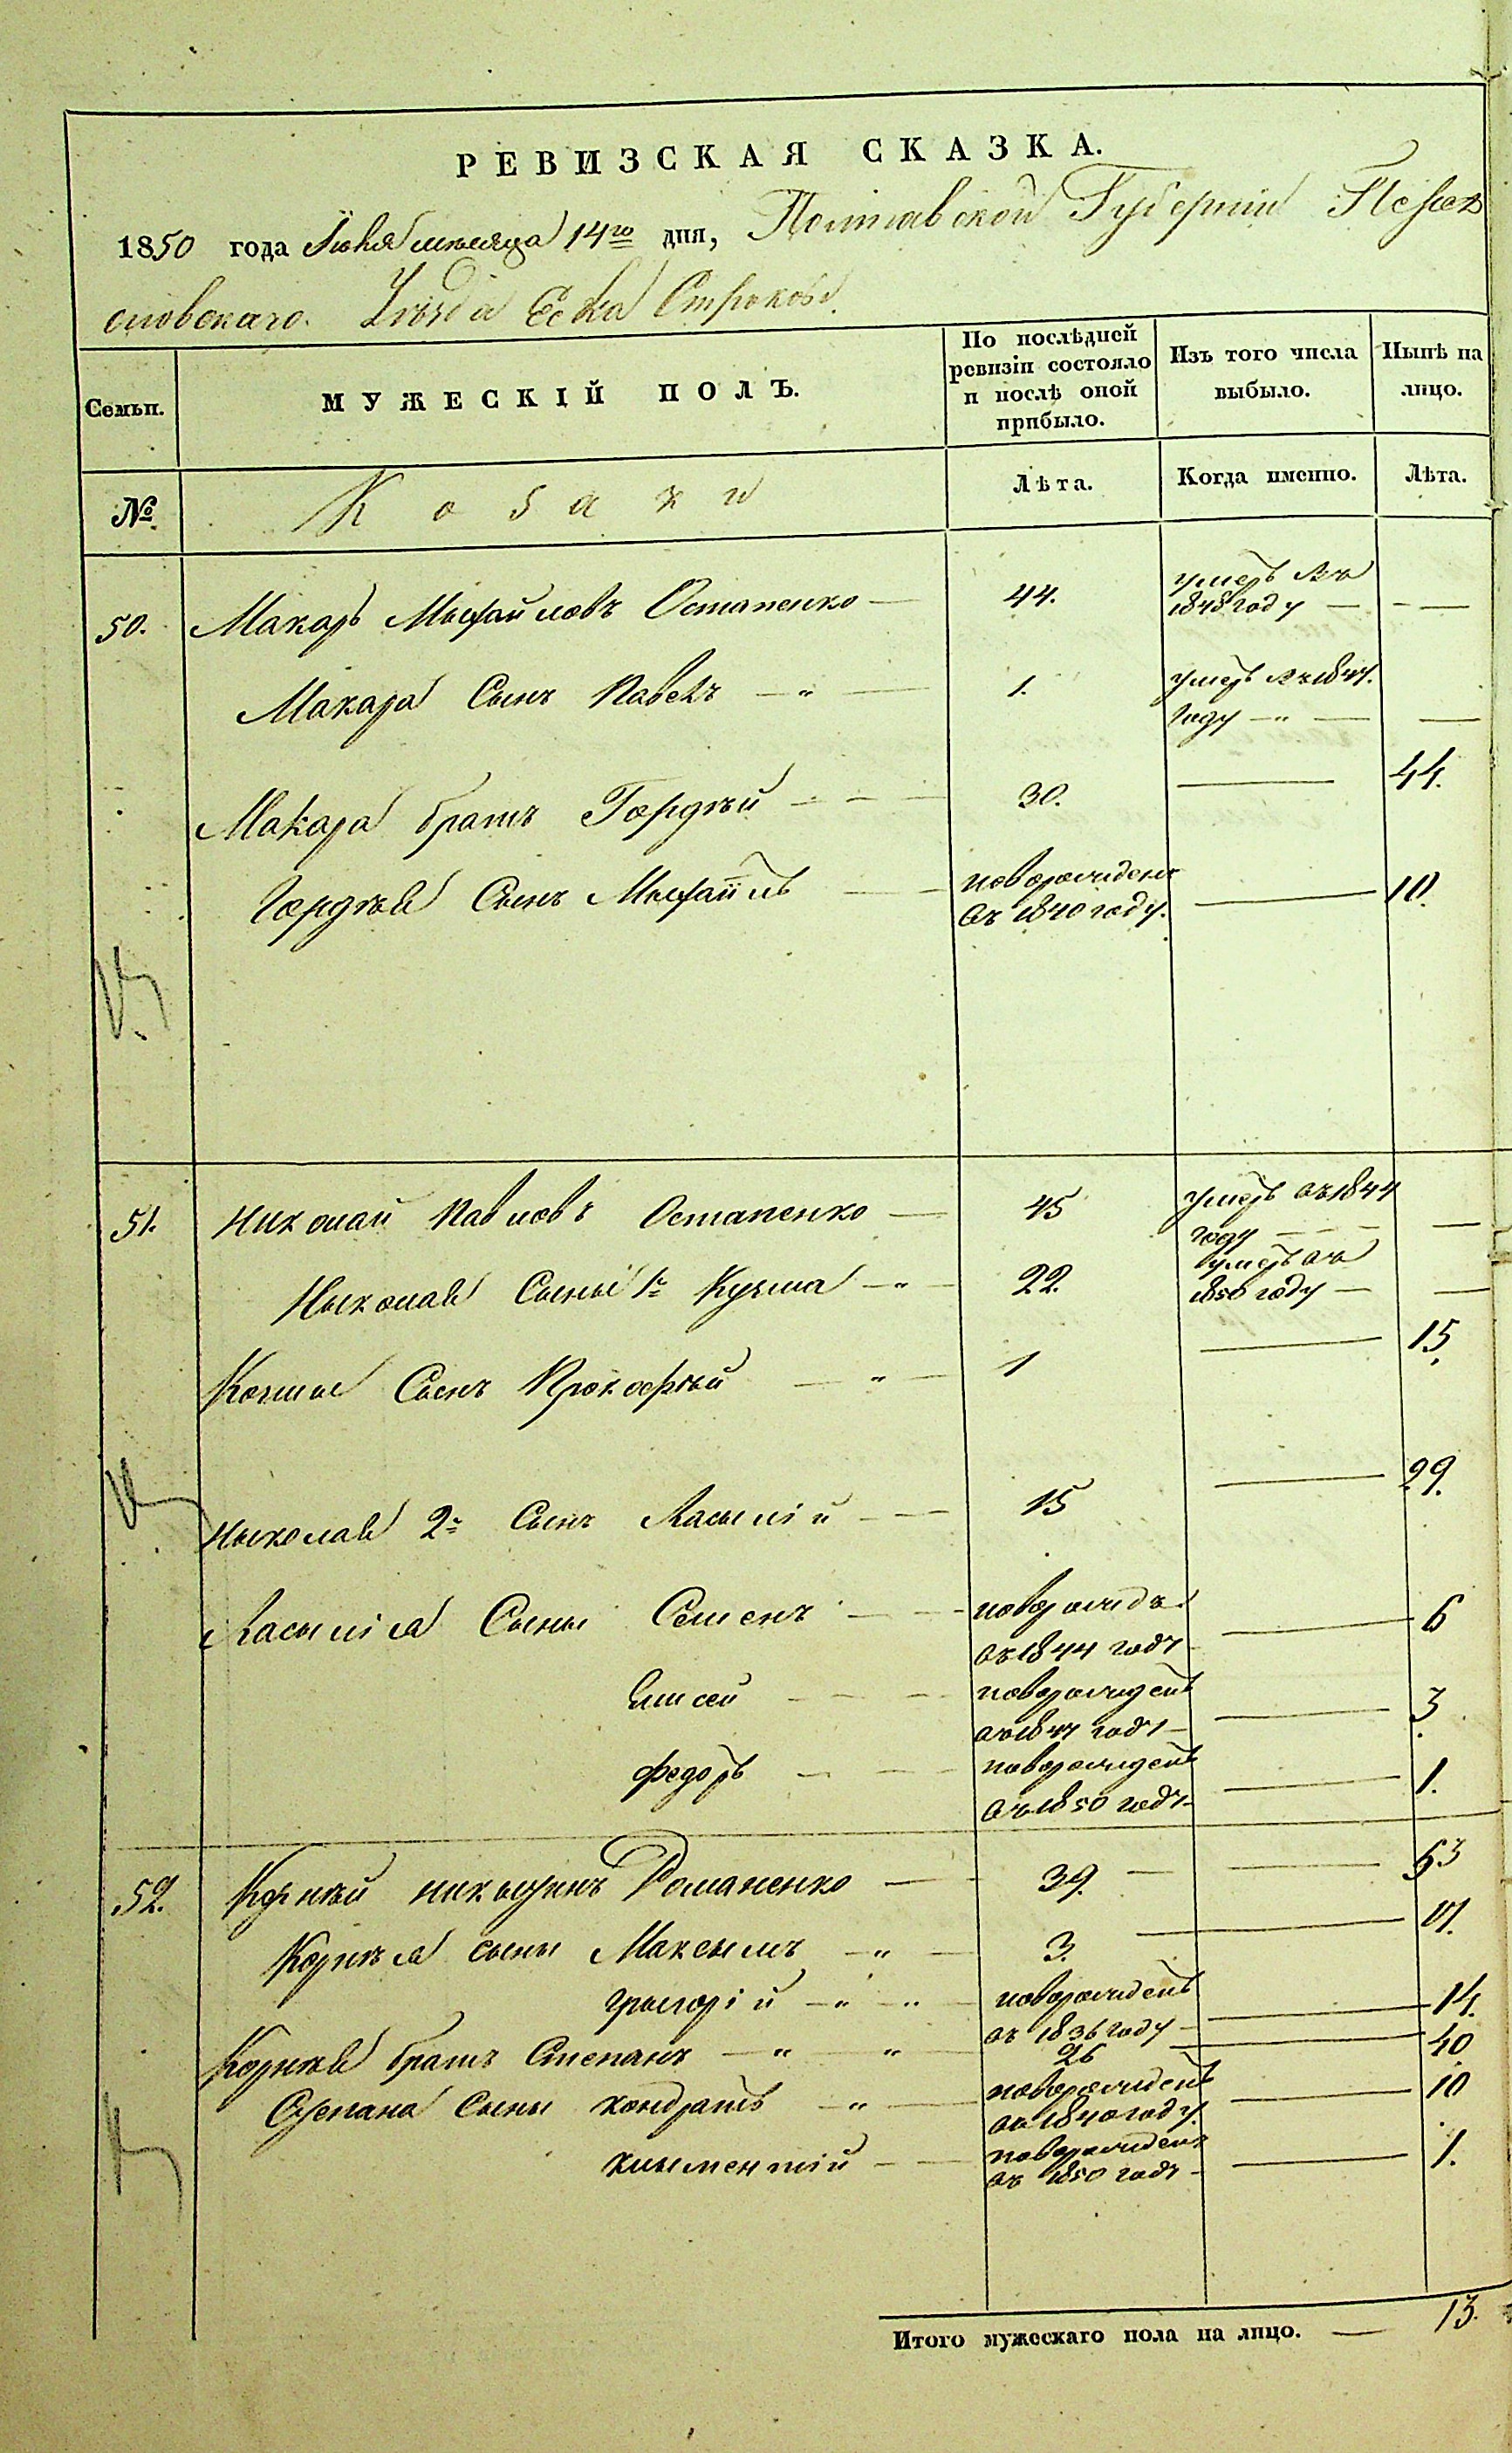 РЕВИЗСКАЯ СКАЗКА.
1850 года Іюня мѣсяца 14го дня, Полтавской Губерніи Переяс
ловскаго Уѣзда Села Строковы
Семьи.
МУЖЕСКІЙ ПОЛЪ.
По послѣдней ревизіи состояло и послѣ оной прибыло.
Изъ того числа выбыло.
Нынѣ на лицо.
№
Козаки
Лѣта.
Когда именно.
Лѣта.
50. Макаръ Мыхайловъ Остапенко — 44. умеръ въ
1848 году — - —
Макара Сынъ Павелъ — " — 1. умеръ въ 1847.
году — " — —
Макара братъ Гордѣй - - — 30. — 44.
Гордѣя Сынъ Мыхаїлъ — — новорожденъ
въ 1840 году. — 10.
51. Николай Павловъ Остапенко — 45 умеръ въ 1844
году - - - —
Ныколая Сыны 1й Кузьма — " — 22. умеръ въ
1850 году — —
Козьмы Сынъ Прокофій — " — 1 — 15.
Ныколая 2й Сынъ Васылій - — — 15 — 29.
Васылія Сыны Семенъ - — — новорожд.
въ 1844 году — — 6
Елисей - - — новорожденъ
въ 1847 году — — 3
Федоръ - - — новорожденъ
въ 1850 году — — 1.
52. Корнѣй Никытинъ Романенко — - 39. — — 53
Корнѣя сыны Максымъ — " — 3. — 17.
Грыгорій — " — " — новорожденъ
въ 1836 году — — 14.
Корнѣя братъ Степанъ — " — " 26 — 40
Степана Сыны Кондратъ — " — новорожденъ
въ 1840 году. — 10
Клыментій — — новорожденъ
въ 1850 году — — 1.
Итого мужескаго пола на лицо. — 13.